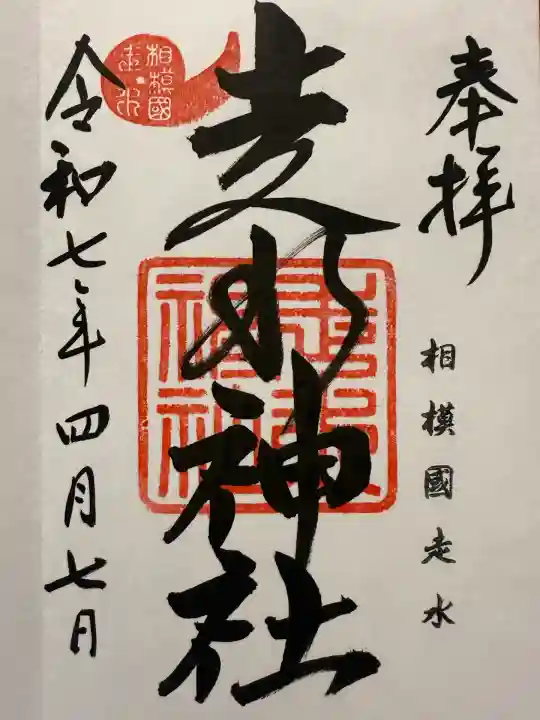 奉拝
相模國走水
走水神社
相模國
走水
走水
神社
令和七年四月七日